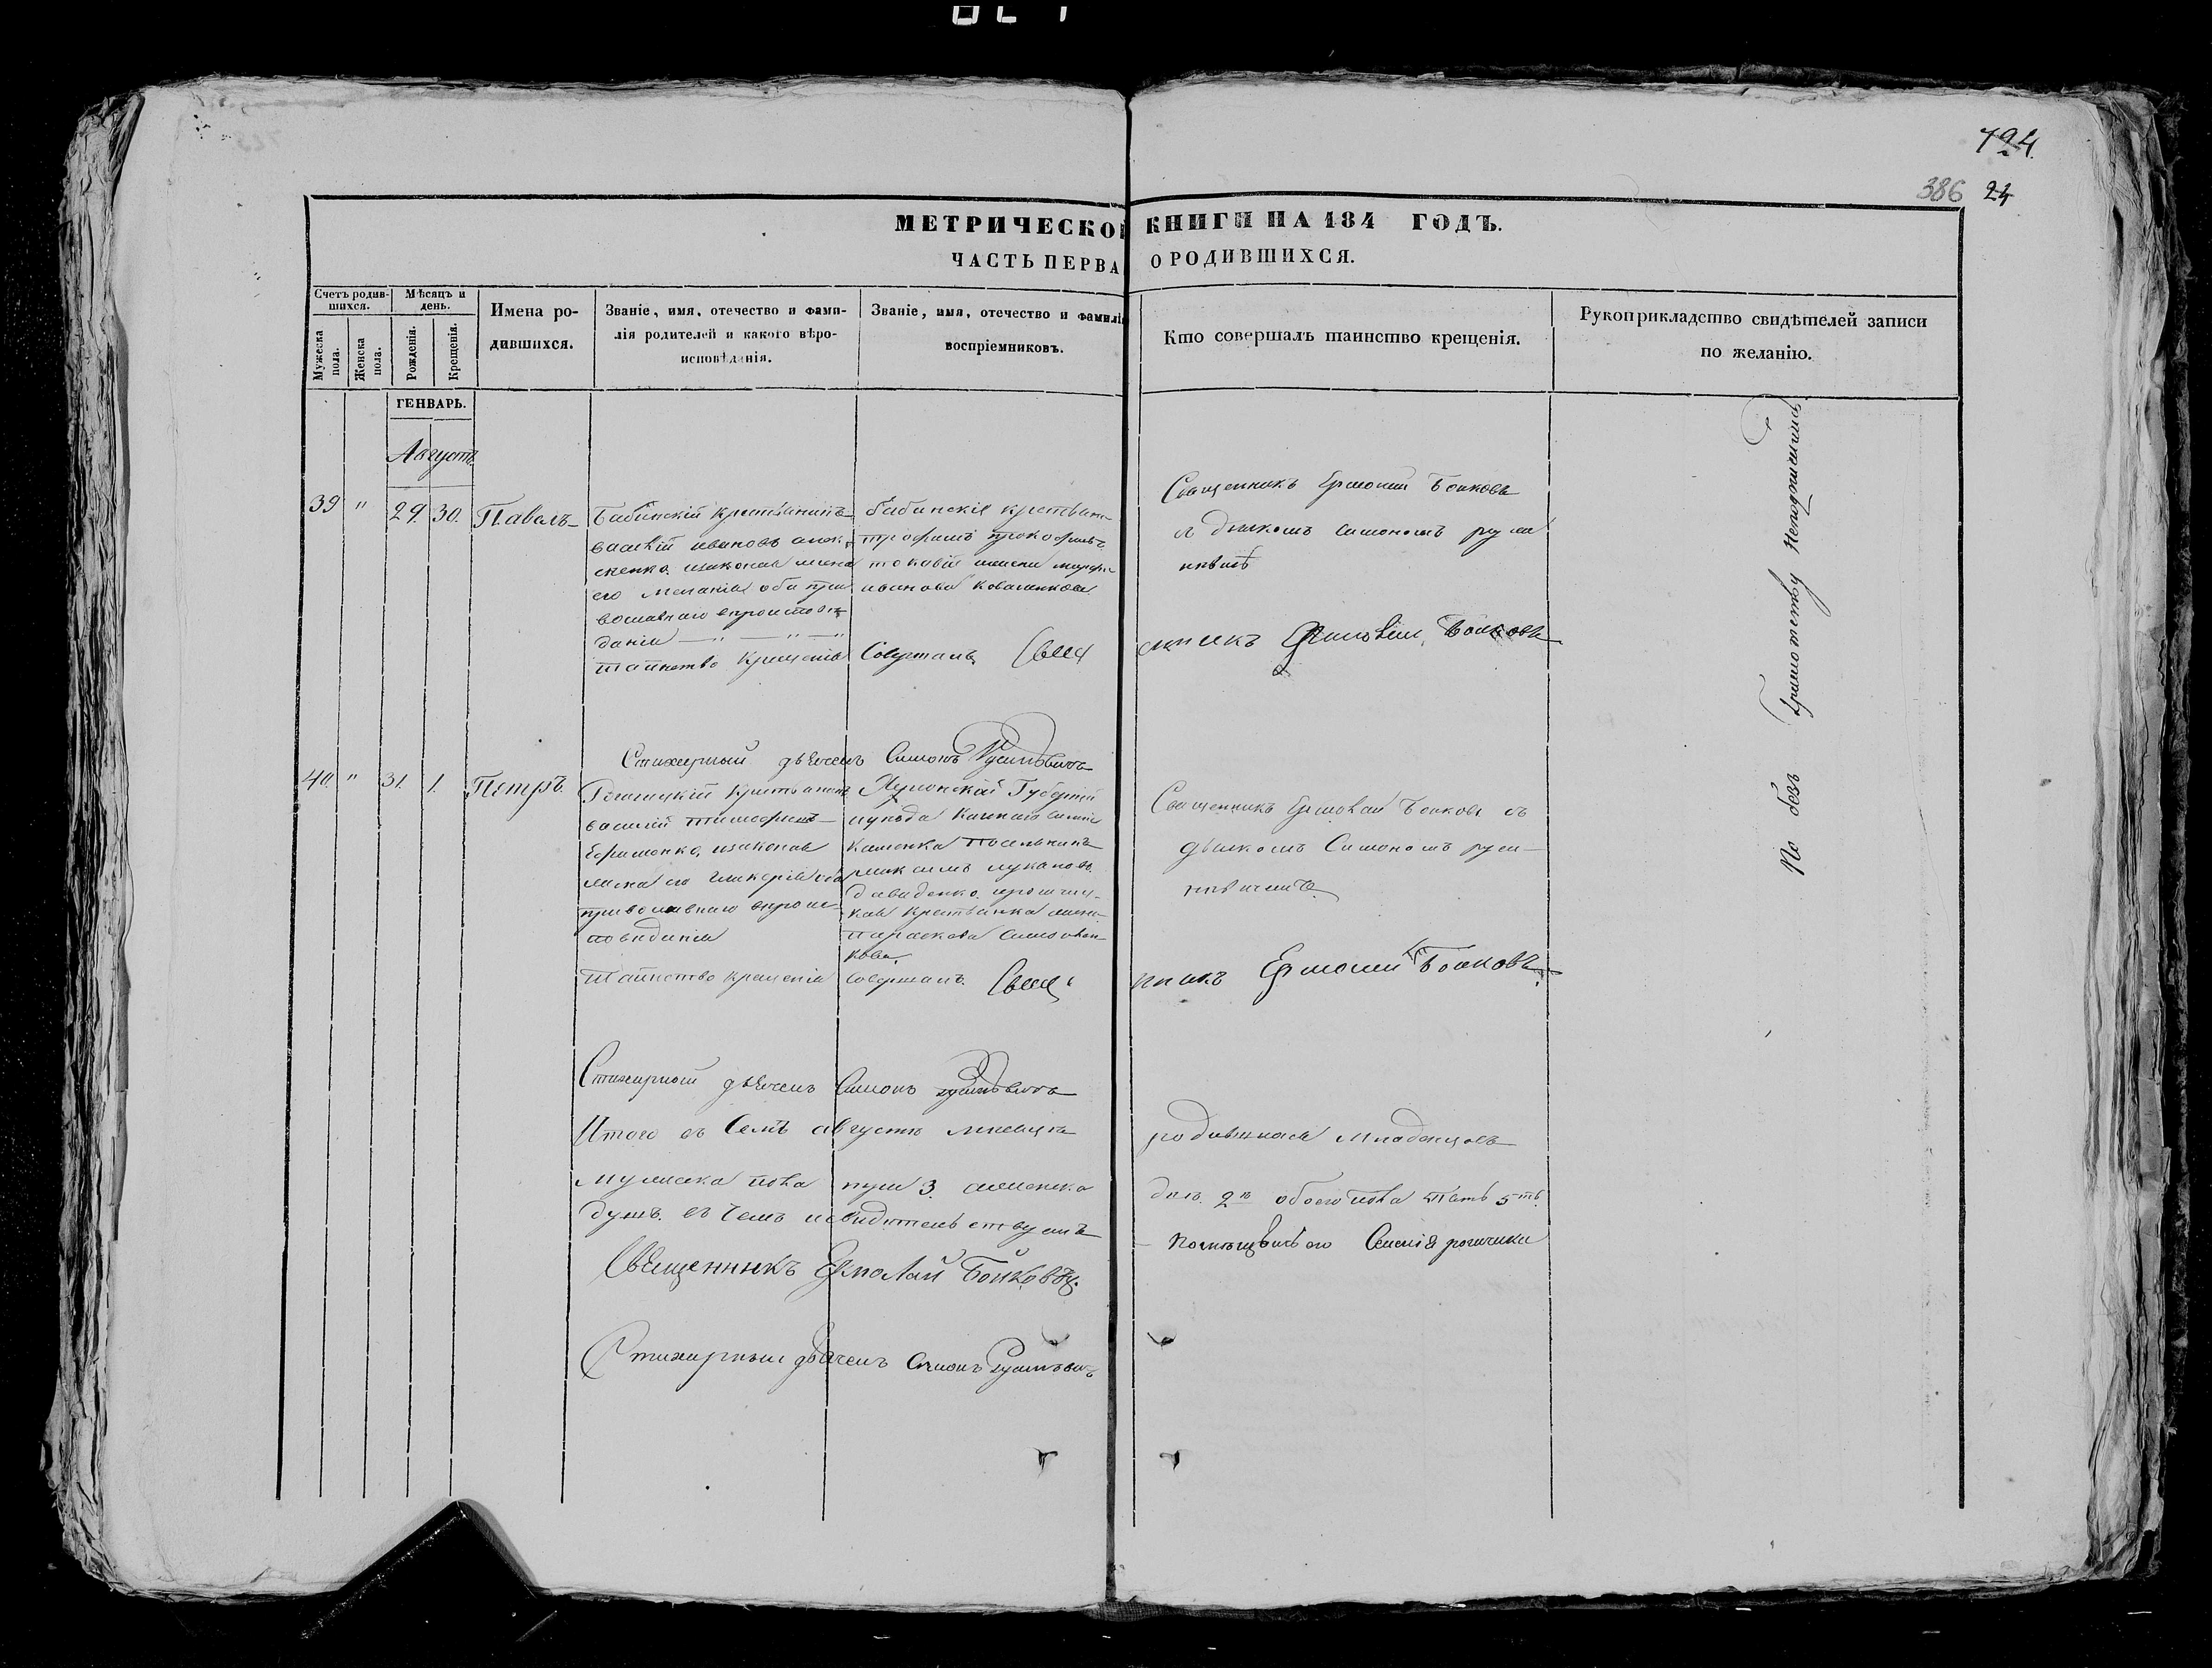 794.
386 24
МЕТРИЧЕСКОЙ КНИГИ НА 184 ГОДЪ.
ЧАСТЬ ПЕРВА О РОДИВШИХСЯ.
Счетъ родив-
шихся.
Мужеска
пола.
Женска
пола.
Мѣсяцъ и
день.
Рожденія.
Крещенія.
Имена ро-
дившихся.
Званіе, имя, отечество и фами-
лія родителей и какого вѣро-
исповѣданія.
Званіе, имя, отечество и фамилі
воспріемниковъ.
Кто совершалъ таинство крещенія.
Рукоприкладство свидѣтелей записи
по желанію.
ГЕНВАРЬ.
Августъ
39 " 29. 30. Павелъ
Бабинскій крестьянинъ
василій ивановъ
его Меланія оба пра
вославнаго вѣроисповѣ
данія — " — " — "
Бабинскіе крестьяне
трофимъ прокофьевъ
иванова Коваленкова
Священникъ Ермолай Бойковъ
съ дьячкомъ симономъ руси
нѣвичемъ
таинство крещенія Совершалъ Свящ
енникъ Ермолай Бойковъ
Стихарный дьячекъ Симонъ Русиновичъ
40. " 31. 1. Петръ.
крестьянинъ
василій тимофеевъ
Ефименко, изаконая
жена его гликерія оба
православнаго вѣроис
повѣданія
Херсонской Губерніи
Каменка
максимъ лукановъ
давиденко
кая крестьянка
параскева
кова,
Священникъ Ермолай Бойковъ съ
дьячкомъ Симономъ руси—
нѣвичемъ
таинство крещенія совершалъ. Свящ
нникъ Ермолай Бойковъ
Стихарный дьячекъ Симонъ Русиновичъ
Итого въ Семъ августѣ мѣсяцѣ родившихся младенцовъ
мужеска пола три 3. женска двѣ. 2ѣ обоего пола пять 5ть.
душъ. въ чемъ исвидѣтельствуемъ
Священникъ Ермолай Бойковъ.
Стихарный дьячекъ Симонъ Русиновичъ
По безъ грамотству Неподписались